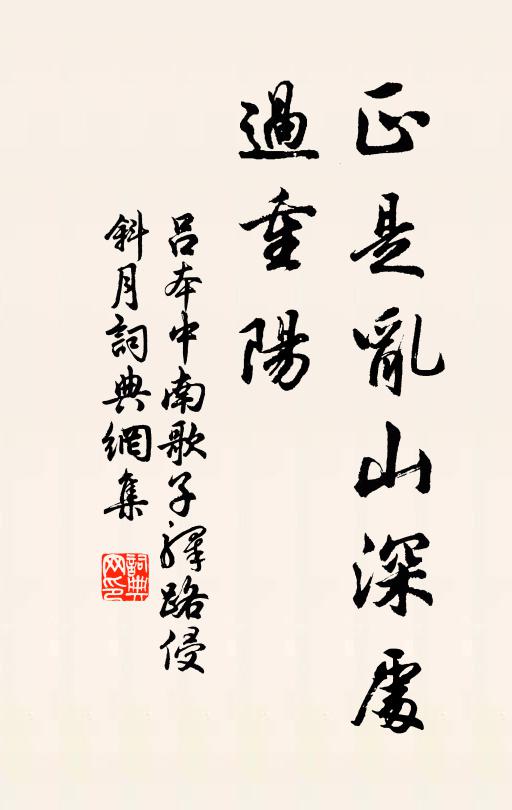 正是亂山深處
過重陽
呂本中南歌子驛路侵
斜月詞典網集
詞典网印